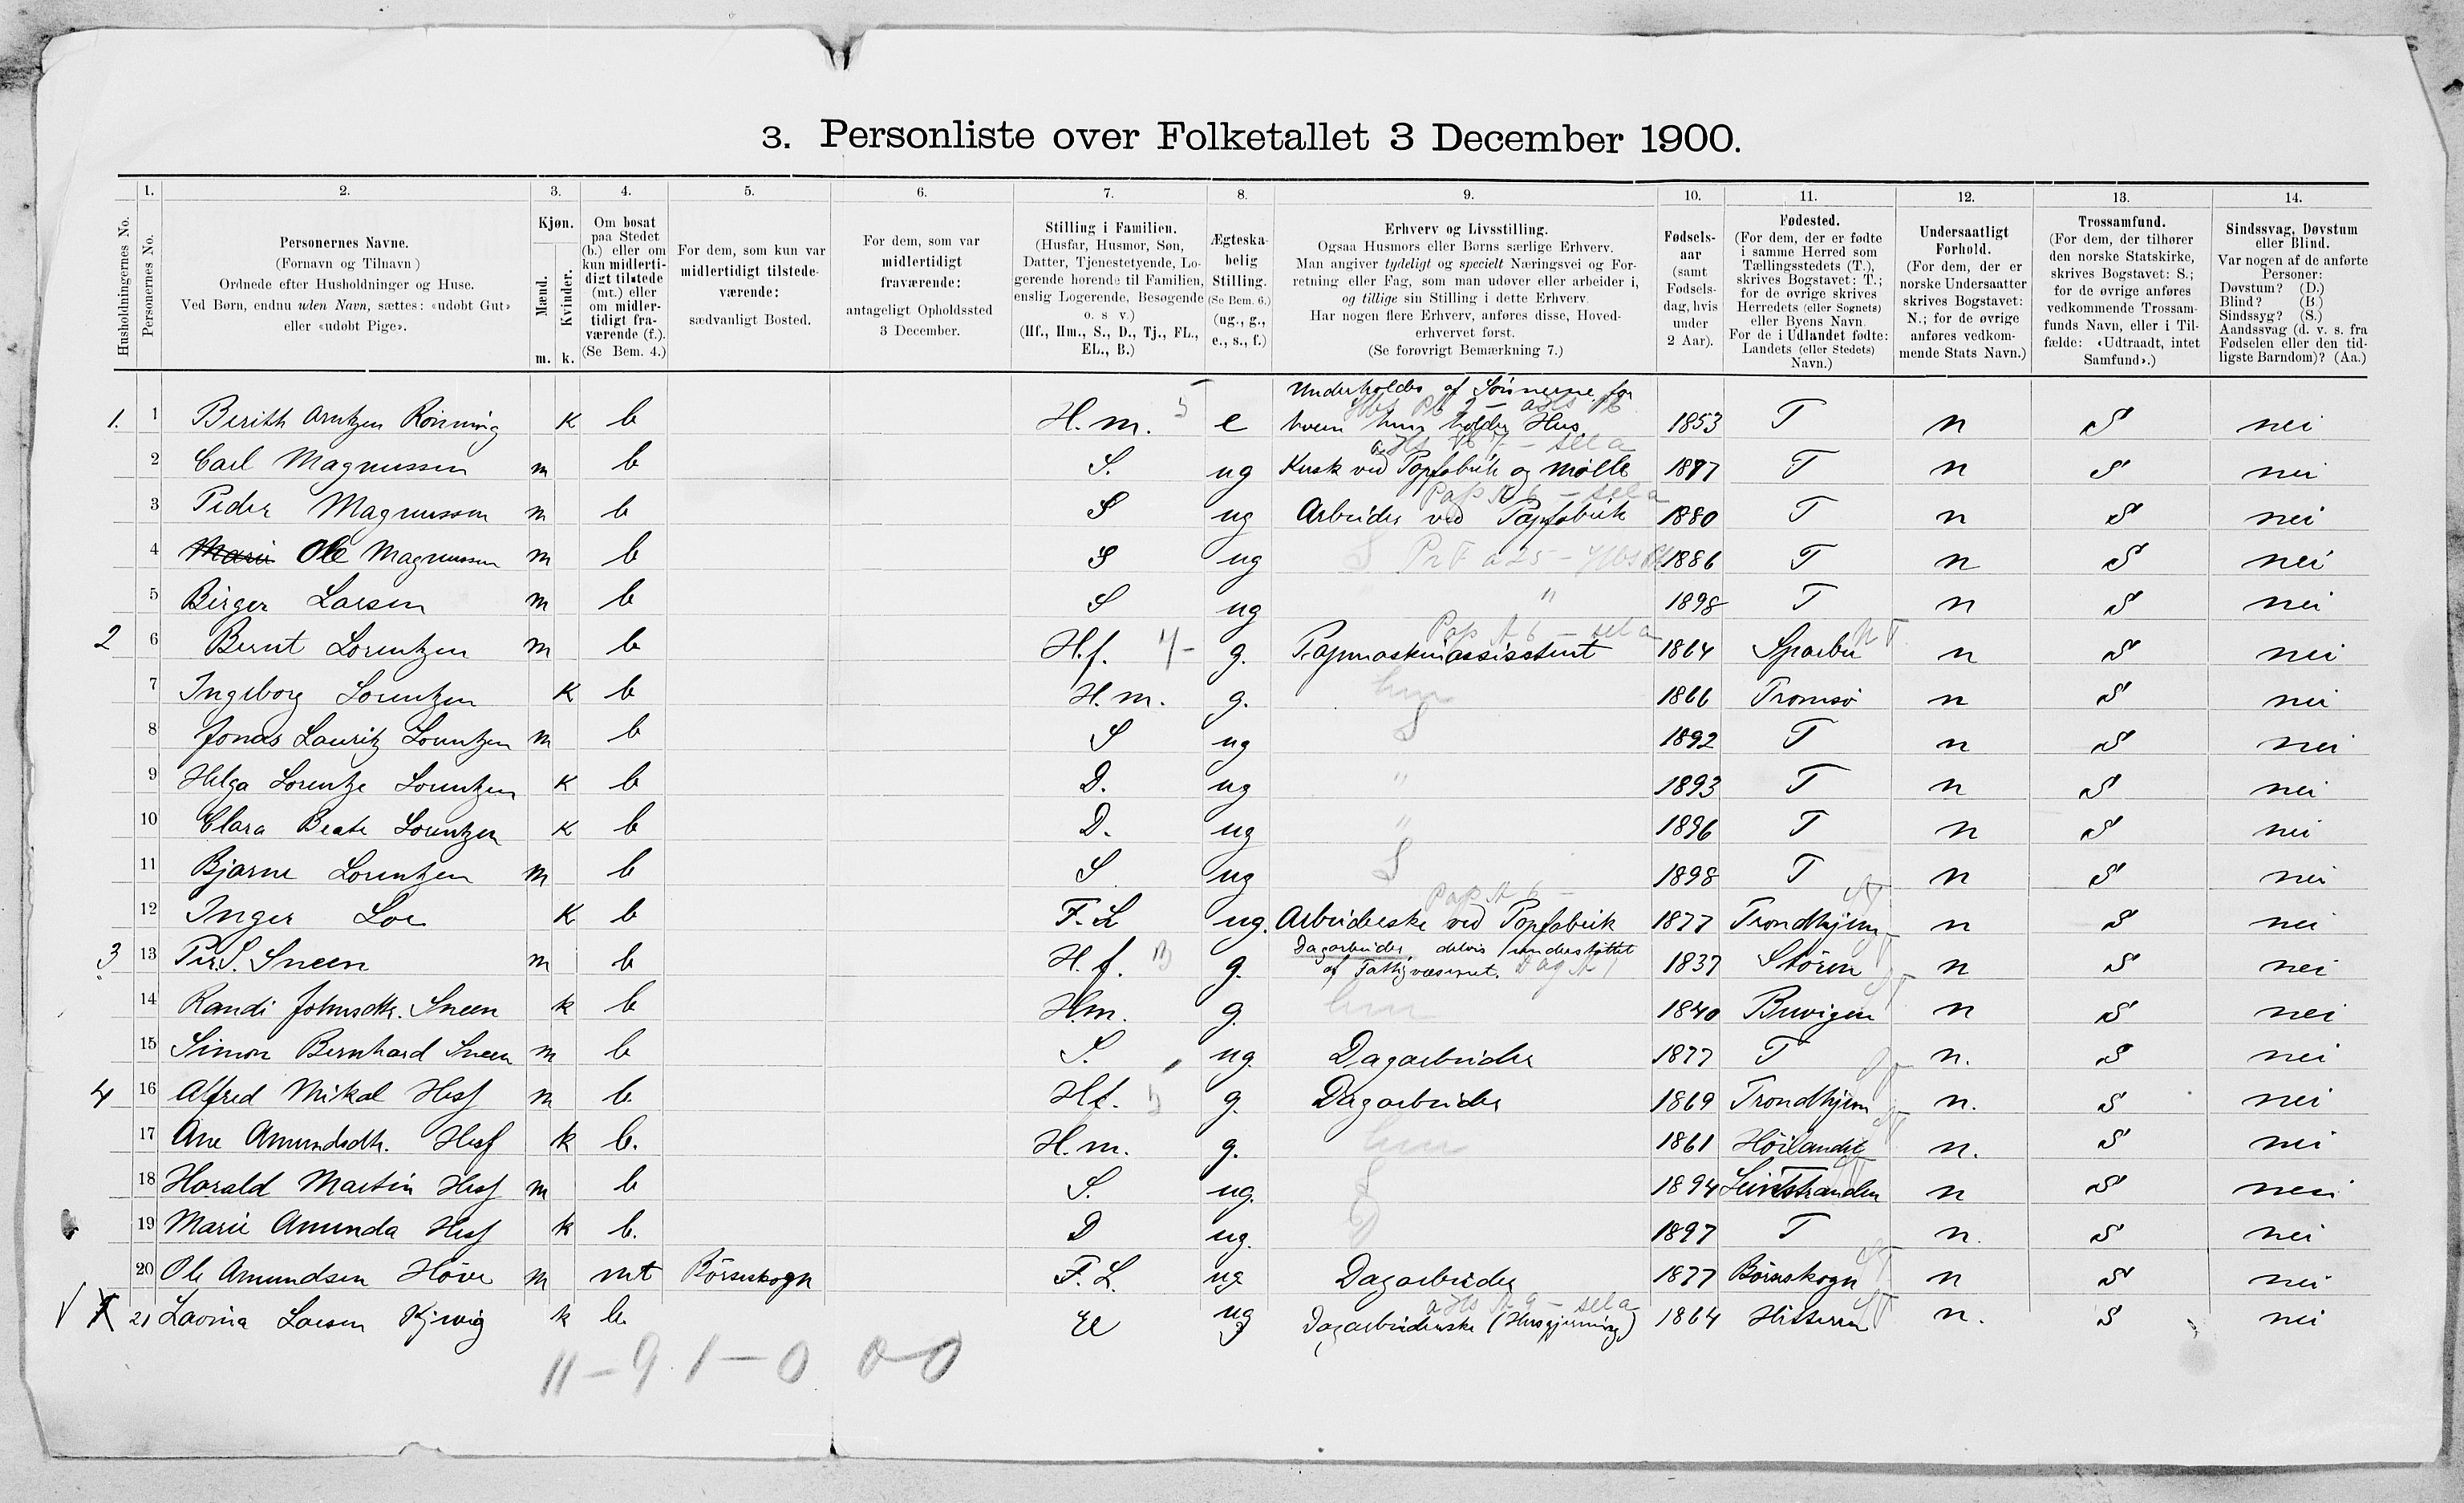 3. Personliste over Folketallet 3 December 1900.
Husholdningernes No.
1. Personernes No.
2. Personernes Navne. (Fornavn og Tilnavn) Ordnede efter Husholdninger og Huse. Ved Børn, endnu uden Navn, sættes: «udøbt Gut» eller «udøbt Pige».
3. Kjøn. Mænd. m. Kvinder. k.
4. Om bosat paa Stedet (b.) eller om kun midlertidigt tilstede (mt.) eller om midlertidigt fraværende (f.). (Se Bem. 4.)
5. For dem, som kun var midlertidigt tilstedeværende: sædvanligt Bosted.
6. For dem, som var midlertidigt fraværende: antageligt Opholdssted 3 December.
7. Stilling i Familien. (Husfar, Husmor, Søn, Datter, Tjenestetyende, Logerende hørende til Familien, enslig Logerende, Besøgende o. s v.) (Hf., Hm., S., D., Tj., FL., EL., B.)
8. Ægteskabelig Stilling. (Se Bem. 6.) (ug., g., e., s., f.)
9. Erhverv og Livsstilling. Ogsaa Husmors eller Børns særlige Erhverv. Man angiver tydeligt og specielt Næringsvei og Forretning eller Fag, som man udøver eller arbeider i, og tillige sin Stilling i dette Erhverv. Har nogen flere Erhverv, anføres disse, Hovederhvervet først. (Se forøvrigt Bemærkning 7.)
10. Fødselsaar (samt Fødselsdag, hvis under 2 Aar).
11. Fødested. (For dem, der er fødte i samme Herred som Tællingsstedets (T.), skrives Bogstavet: T.; for de øvrige skrives Herredets (eller Sognets) eller Byens Navn. For de i Udlandet fødte: Landets (eller Stedets) Navn.)
12. Undersaatligt Forhold. (For dem, der er norske Undersaatter skrives Bogstavet: N.; for de øvrige anføres vedkommende Stats Navn.)
13. Trossamfund. (For dem, der tilhører den norske Statskirke, skrives Bogstavet: S.; for de øvrige anføres vedkommende Trossamfunds Navn, eller i Tilfælde: «Udtraadt, intet Samfund».)
14. Sindssvag, Døvstum eller Blind. Var nogen af de anførte Personer: Døvstum? (D.) Blind? (B.) Sindssyg? (S.) Aandssvag (d. v. s. fra Fødselen eller den tidligste Barndom)? (Aa.)
1. 1 Berith Arntzen Rönning k b H.m. 5 e Underholdes af Sönnerne for hvem hun holder Hus 1853 T n S nei
2 Carl Magnussen m b S. ug Kusk ved Papfabrik og Mölle 1877 T n S nei
3 Peder Magnussen m b S ug Arbeider ved Papfabrik 1880 T n S nei
4 Marie Ole Magnussen m b S ug 1886 T n S nei
5 Birger Larsen m b S ug " 1898 T n S nei
2 6 Bernt Lorentzen m b H.f. g. Papmaskinassisstent 1864 Sparbu n S nei
7 Ingeborg Lorentzen k b H.m. g. hm 1866 Tromsö n S nei
8 Jonas Lauritz Lorentzen m b S ug S 1892 T n S nei
9 Helga Lorentze Lorentzen k b D. ug " 1893 T n S nei
10 Clara Beate Lorentzen k b D. ug " 1896 T n S nei
11 Bjarne Lorentzen m b S ug S 1898 T n S nei
12 Inger Loe k b F.L ug. Arbeiderske ved Papfabrik 1877 Trondhjem n S nei
3 13 Per S. Sneen m b H.f. g. Dagarbeider, delvis understöttet af Fattigvæsenet. 1837 Stören n S nei
14 Randi Johnsdtr. Sneen k b Hm. g. hm 1840 Buvigen n S nei
15 Simon Bernhard Sneen m b S. ug. Dagarbeider 1877 T n. S nei
4 16 Alfred Mikal Hesf m b. Hf. 5 g. Dagarbeider 1869 Trondhjem n. S nei
17 Ane Amundsdtr. Hesf k b. H.m. g. hm 1861 Höilandet n. S nei
18 Harald Martin Hesf m b S. ug. S 1894 Leinstranden n S nei
19 Marie Amunda Hesf k b. D ug. D 1897 T n. S nei
20 Ole Amundsen Höve m mt Börseskogn F.L. ug Dagarbeider 1877 Börseskogn n S nei
21 Lavina Larsen k b. El ug Dagarbeiderske (Husgjerning) 1864 Hitteren n. S nei
11 – 9 1 – 0 0 – 0